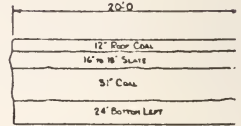 20'0
12" ROOF COAL
16" TO 18" SLATE
51" COAL
24" BOTTOM LEFT